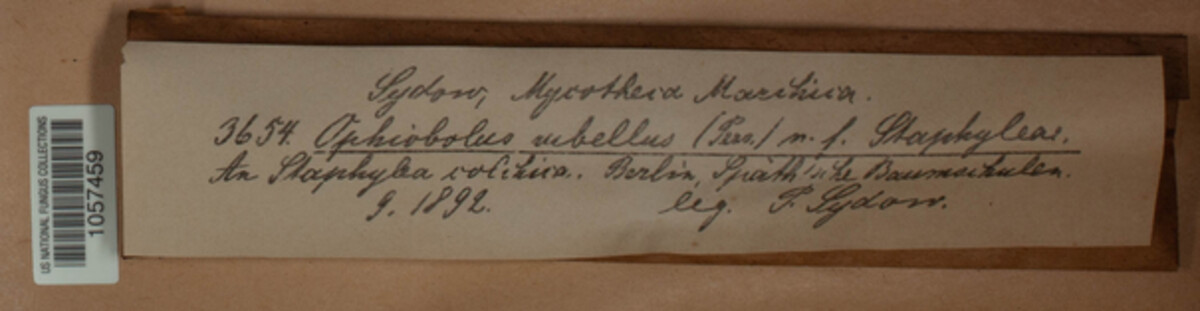 Sydow, Mycotheca Marchica.
3654. Ophiobolus rubellus (Pers.) n. f. Staphyleae.
An Staphylea colchica. Berlin, Späth'sche Baumschulen.
9. 1892. leg. P. Sydow.
US NATIONAL FUNGUS COLLECTIONS
1057459